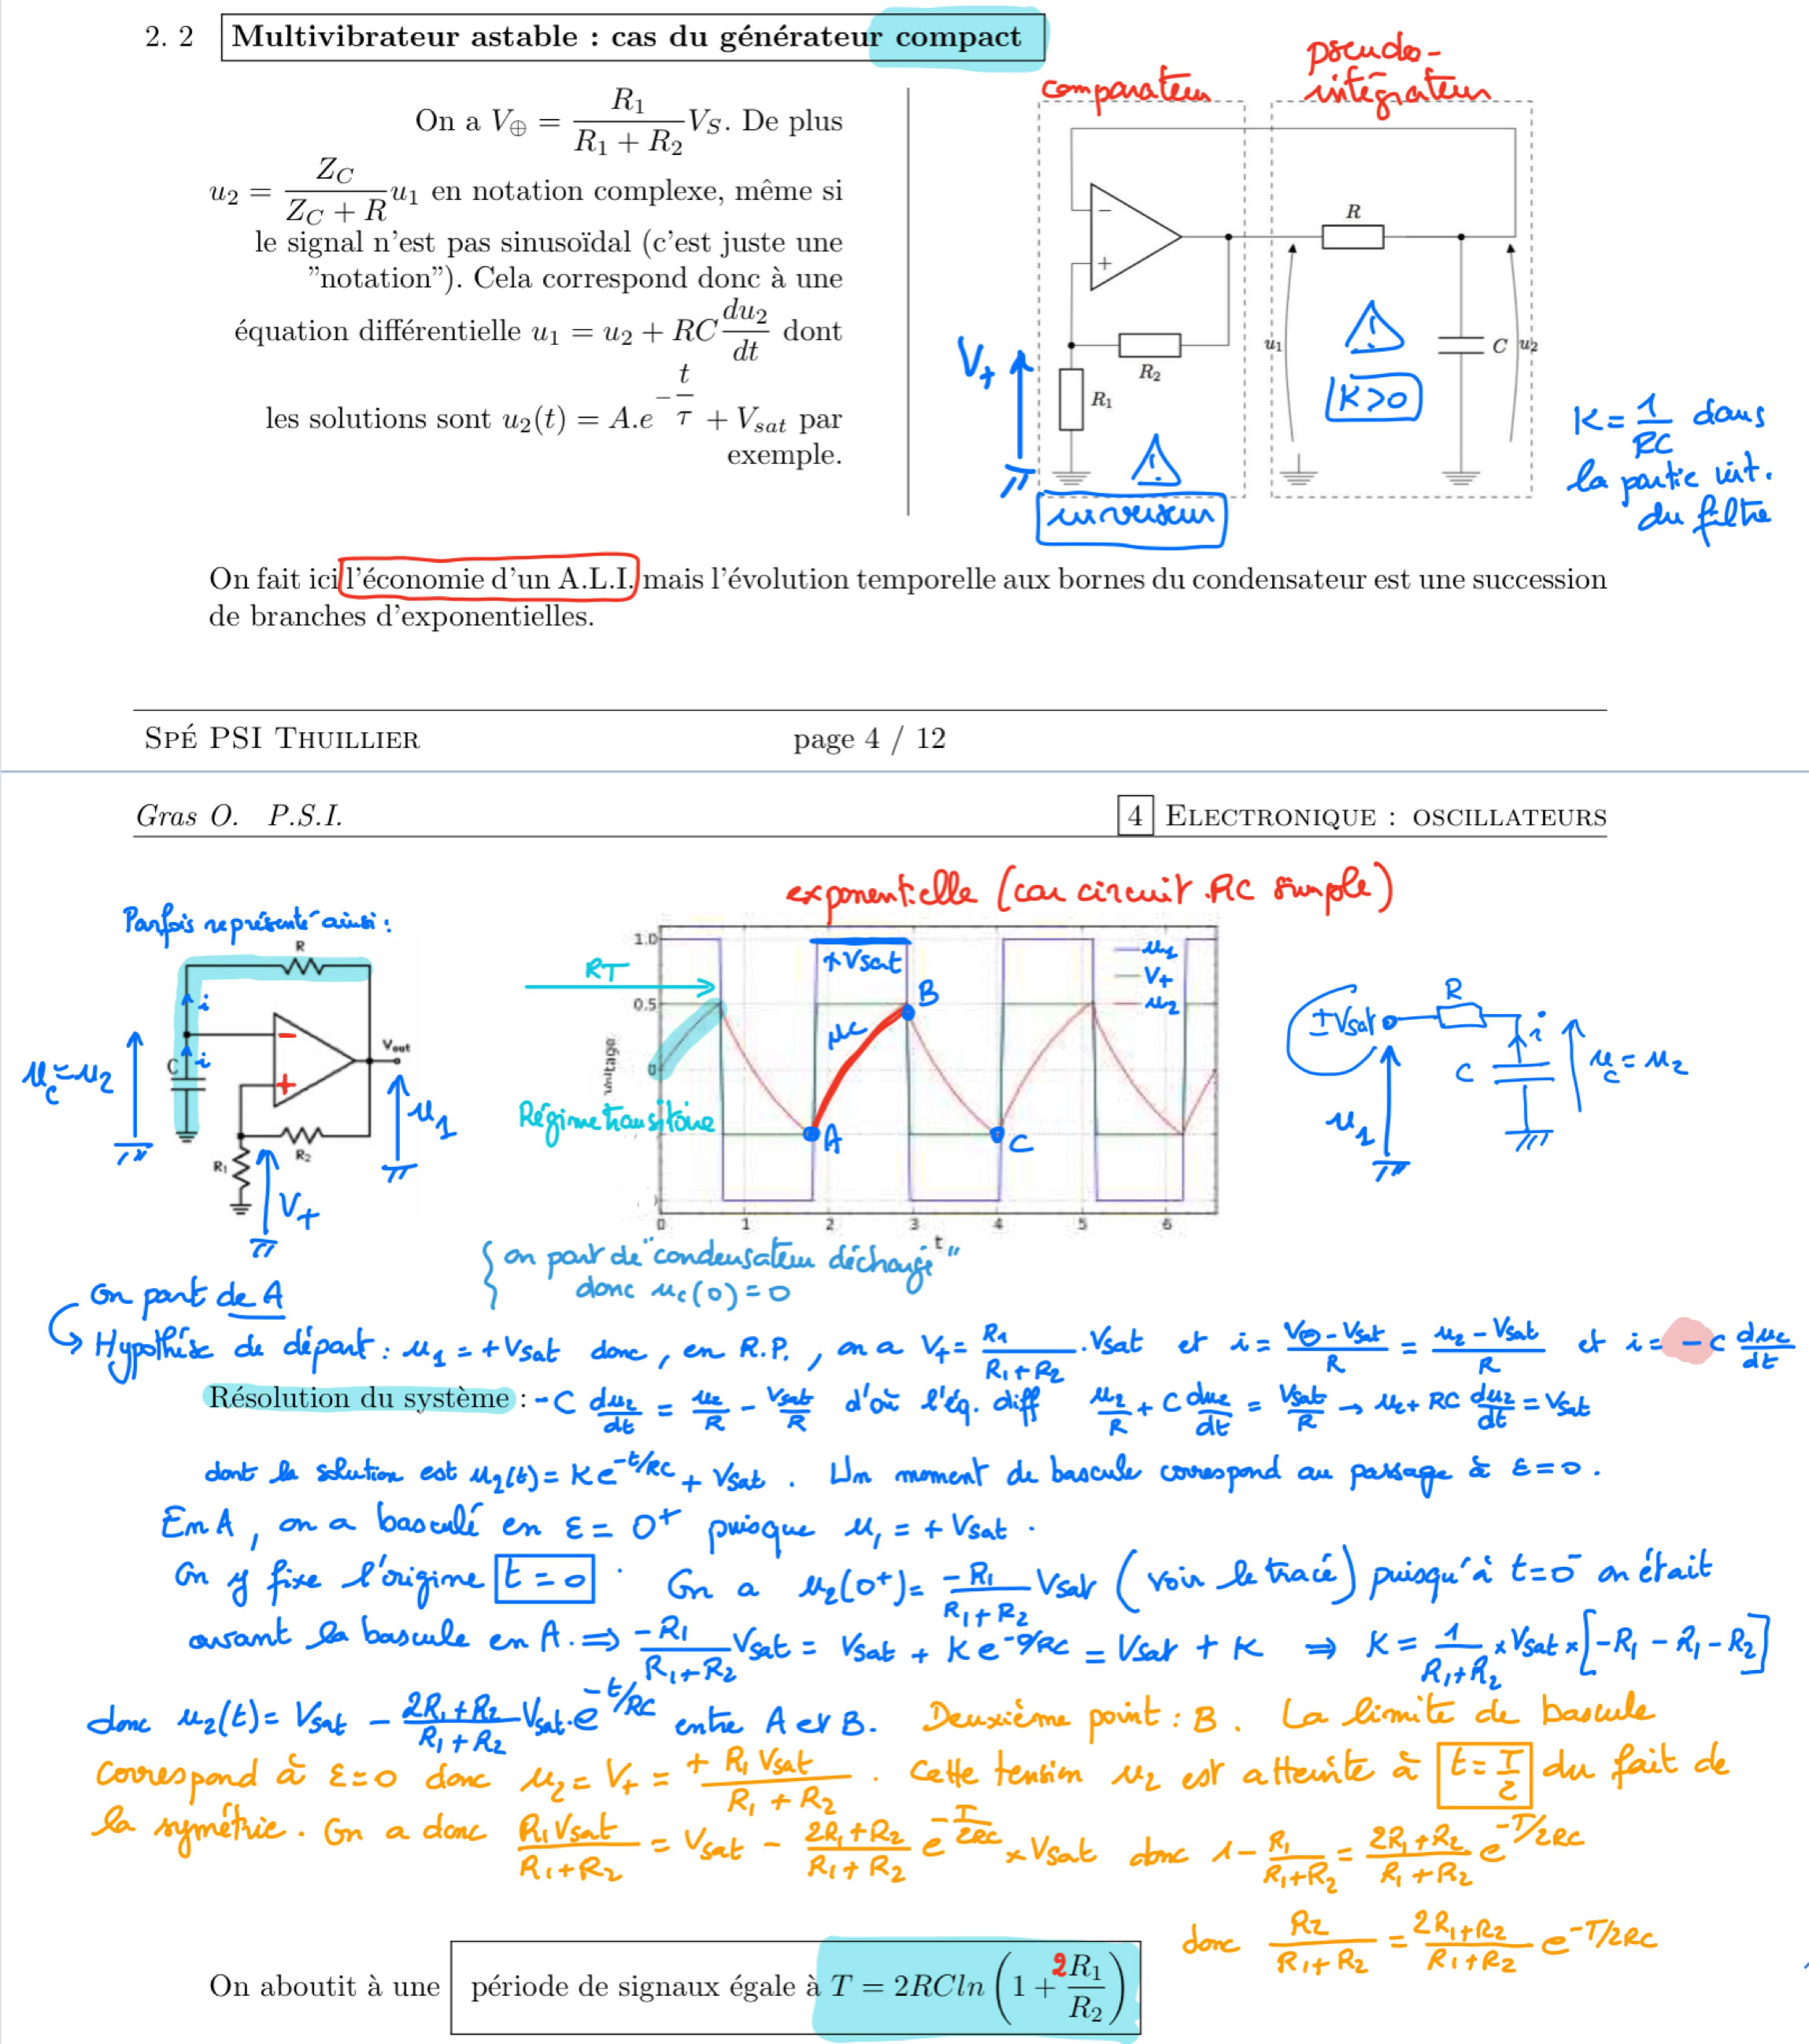 2. 2 Multivibrateur astable : cas du générateur compact
On a V⊕ = R₁/(R₁ + R₂) V_S. De plus
u₂ = Z_C/(Z_C + R) u₁ en notation complexe, même si
le signal n'est pas sinusoïdal (c'est juste une
"notation"). Cela correspond donc à une
équation différentielle u₁ = u₂ + RC du₂/dt dont
les solutions sont u₂(t) = A.e^(-t/τ) + V_sat par
exemple.
comparateur
pseudo-
intégrateur
−
+
R
R₂
R₁
u₁
C
u₂
V₊
⚠
inverseur
⚠
K>0
K = 1/RC dans
la partie int.
du filtre
On fait ici l'économie d'un A.L.I. mais l'évolution temporelle aux bornes du condensateur est une succession
de branches d'exponentielles.
Spé PSI Thuillier page 4 / 12
Gras O. P.S.I. 4 Electronique : oscillateurs
exponentielle (car circuit RC simple)
Parfois représenté ainsi :
R
i
i
C
−
+
V_out
R₂
R₁
u_c = u₂
u₁
V₊
RT
Régime transitoire
1.0
0.5
0
voltage
0 1 2 3 4 5 6
t
+Vsat
u_c
A
B
C
u₁
V₊
u₂
±Vsat
R
i
C
u_c = u₂
u₁
{ on part de "condensateur déchargé"
donc u_c(0) = 0
On part de A
↳ Hypothèse de départ : u₁ = +Vsat donc, en R.P., on a V₊ = R₁/(R₁+R₂) . Vsat et i = (V⊖ - Vsat)/R = (u₂ - Vsat)/R et i = -C du_c/dt
Résolution du système : -C du₂/dt = u₂/R - Vsat/R d'où l'éq. diff u₂/R + C du₂/dt = Vsat/R → u₂ + RC du₂/dt = Vsat
dont la solution est u₂(t) = K e^(-t/RC) + Vsat . Un moment de bascule correspond au passage à ε = 0 .
En A, on a basculé en ε = 0⁺ puisque u₁ = + Vsat .
On y fixe l'origine t = 0 . On a u₂(0⁺) = -R₁/(R₁+R₂) Vsat (voir le tracé) puisqu'à t = 0⁻ on était
avant la bascule en A. ⇒ -R₁/(R₁+R₂) Vsat = Vsat + K e^(-0/RC) = Vsat + K ⇒ K = 1/(R₁+R₂) × Vsat × [-R₁ - R₁ - R₂]
donc u₂(t) = Vsat - (2R₁+R₂)/(R₁+R₂) Vsat . e^(-t/RC) entre A et B. Deuxième point : B . La limite de bascule
correspond à ε = 0 donc u₂ = V₊ = + R₁ Vsat/(R₁ + R₂) . Cette tension u₂ est atteinte à t = T/2 du fait de
la symétrie. On a donc R₁ Vsat/(R₁+R₂) = Vsat - (2R₁+R₂)/(R₁+R₂) e^(-T/2RC) × Vsat donc 1 - R₁/(R₁+R₂) = (2R₁+R₂)/(R₁+R₂) e^(-T/2RC)
donc R₂/(R₁+R₂) = (2R₁+R₂)/(R₁+R₂) e^(-T/2RC)
On aboutit à une période de signaux égale à T = 2RCln(1 + 2R₁/R₂)